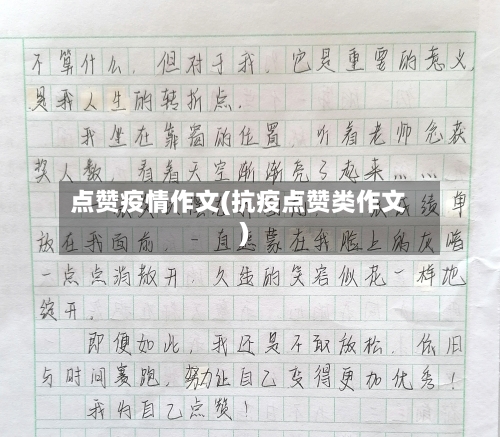 不算什么，但对于我，它是重要的意义，
是我人生的转折点。
我坐在靠窗的位置，听着老师念获
奖人数，看着天空渐渐亮了起来……
点赞疫情作文(抗疫点赞类作文
)
成绩单
放在我面前，一直蒙在我脸上的灰暗
一点点消散开，久违的笑容似花一样地
绽开。
即便如此，我还是不敢放松，依旧
与时间赛跑，努力让自己变得更加优秀！
我为自己点赞！